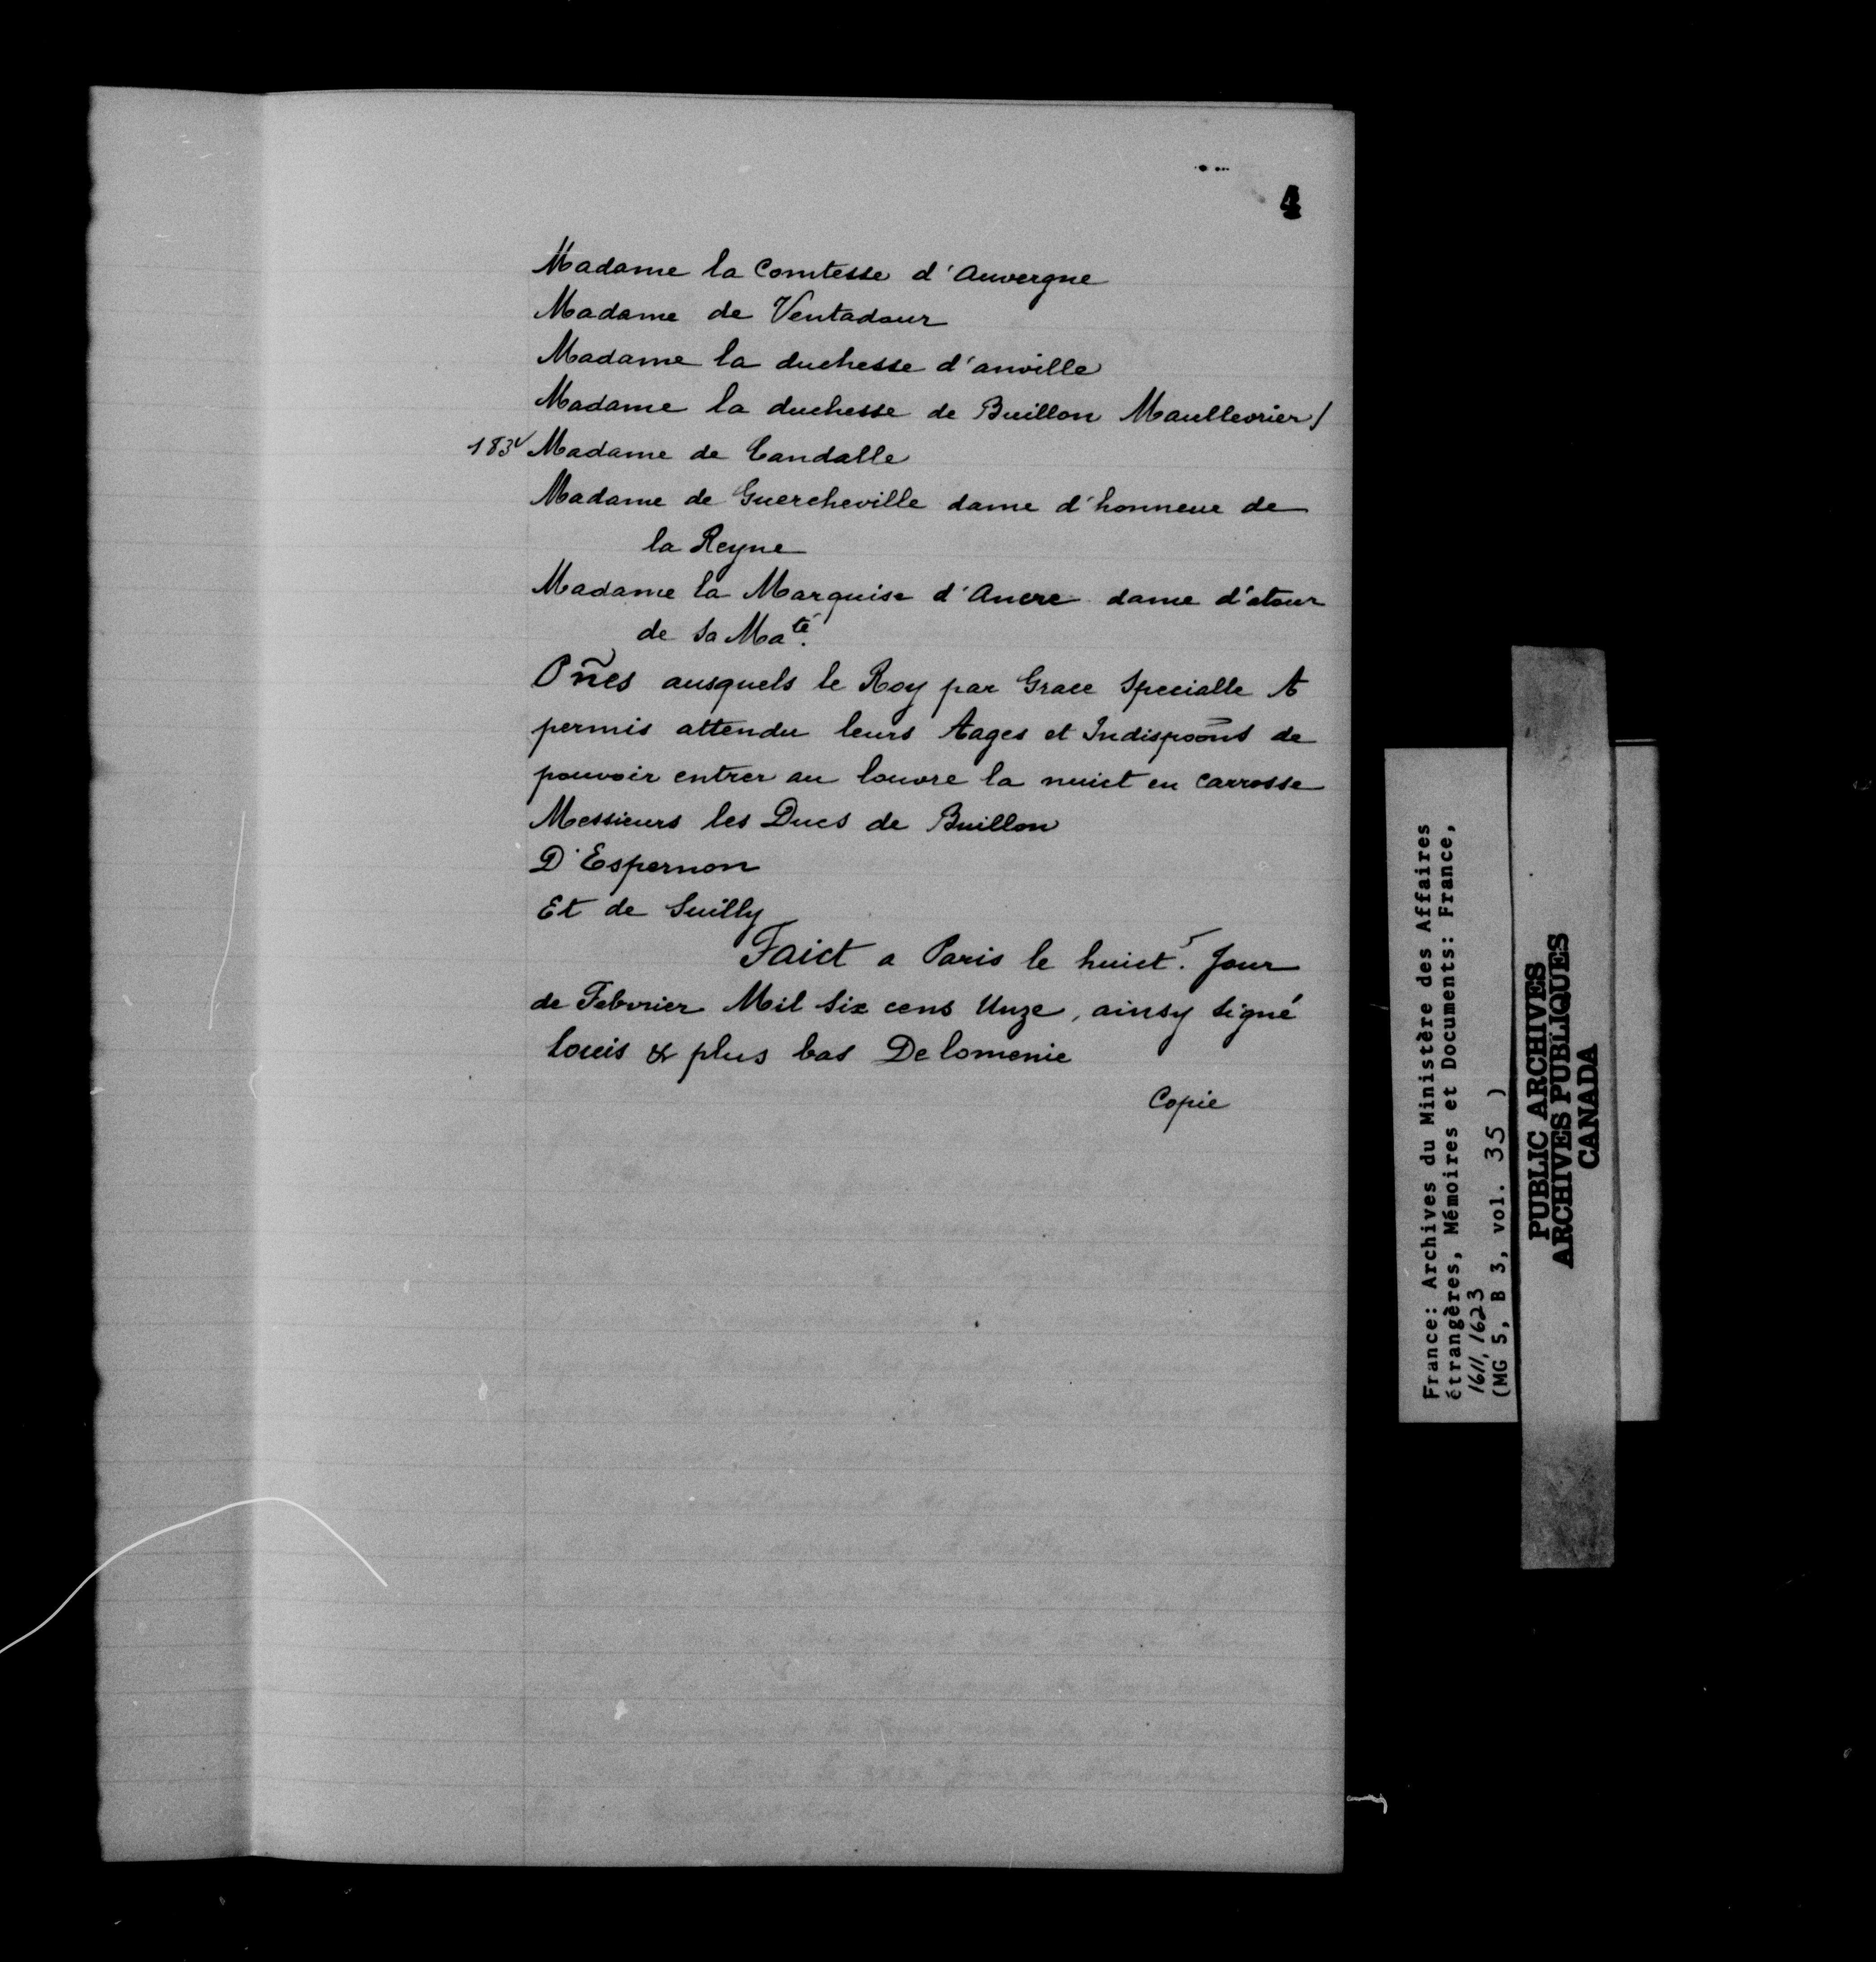 4
Madame la Comtesse d'Auvergne
Madame de Ventadour
Madame la duchesse d'anville
Madame la duchesse de Buillon Maullevrier/
183v Madame de Candalle
Madame de Guercheville dame d'honneur de
la Reyne
Madame la Marquise d'Ancre dame d'atour
de Sa Maté.
Pñes ausquels le Roy par Grace Specialle A
permis attendu leurs Aages et Indispoõns de
pouvoir entrer au louvre la nuict en Carrosse
Messieurs les Ducs de Buillon
D'Espernon
Et de Suilly
Faict a Paris le huict. Jour
de Febvrier Mil six cens Unze, ainsy signé
louis & plus bas De lomenie
Copie
France: Archives du Ministère des Affaires
étrangères, Mémoires et Documents: France,
1611, 1623
(MG 5, B 3, vol. 35 )
PUBLIC ARCHIVES
ARCHIVES PUBLIQUES
CANADA